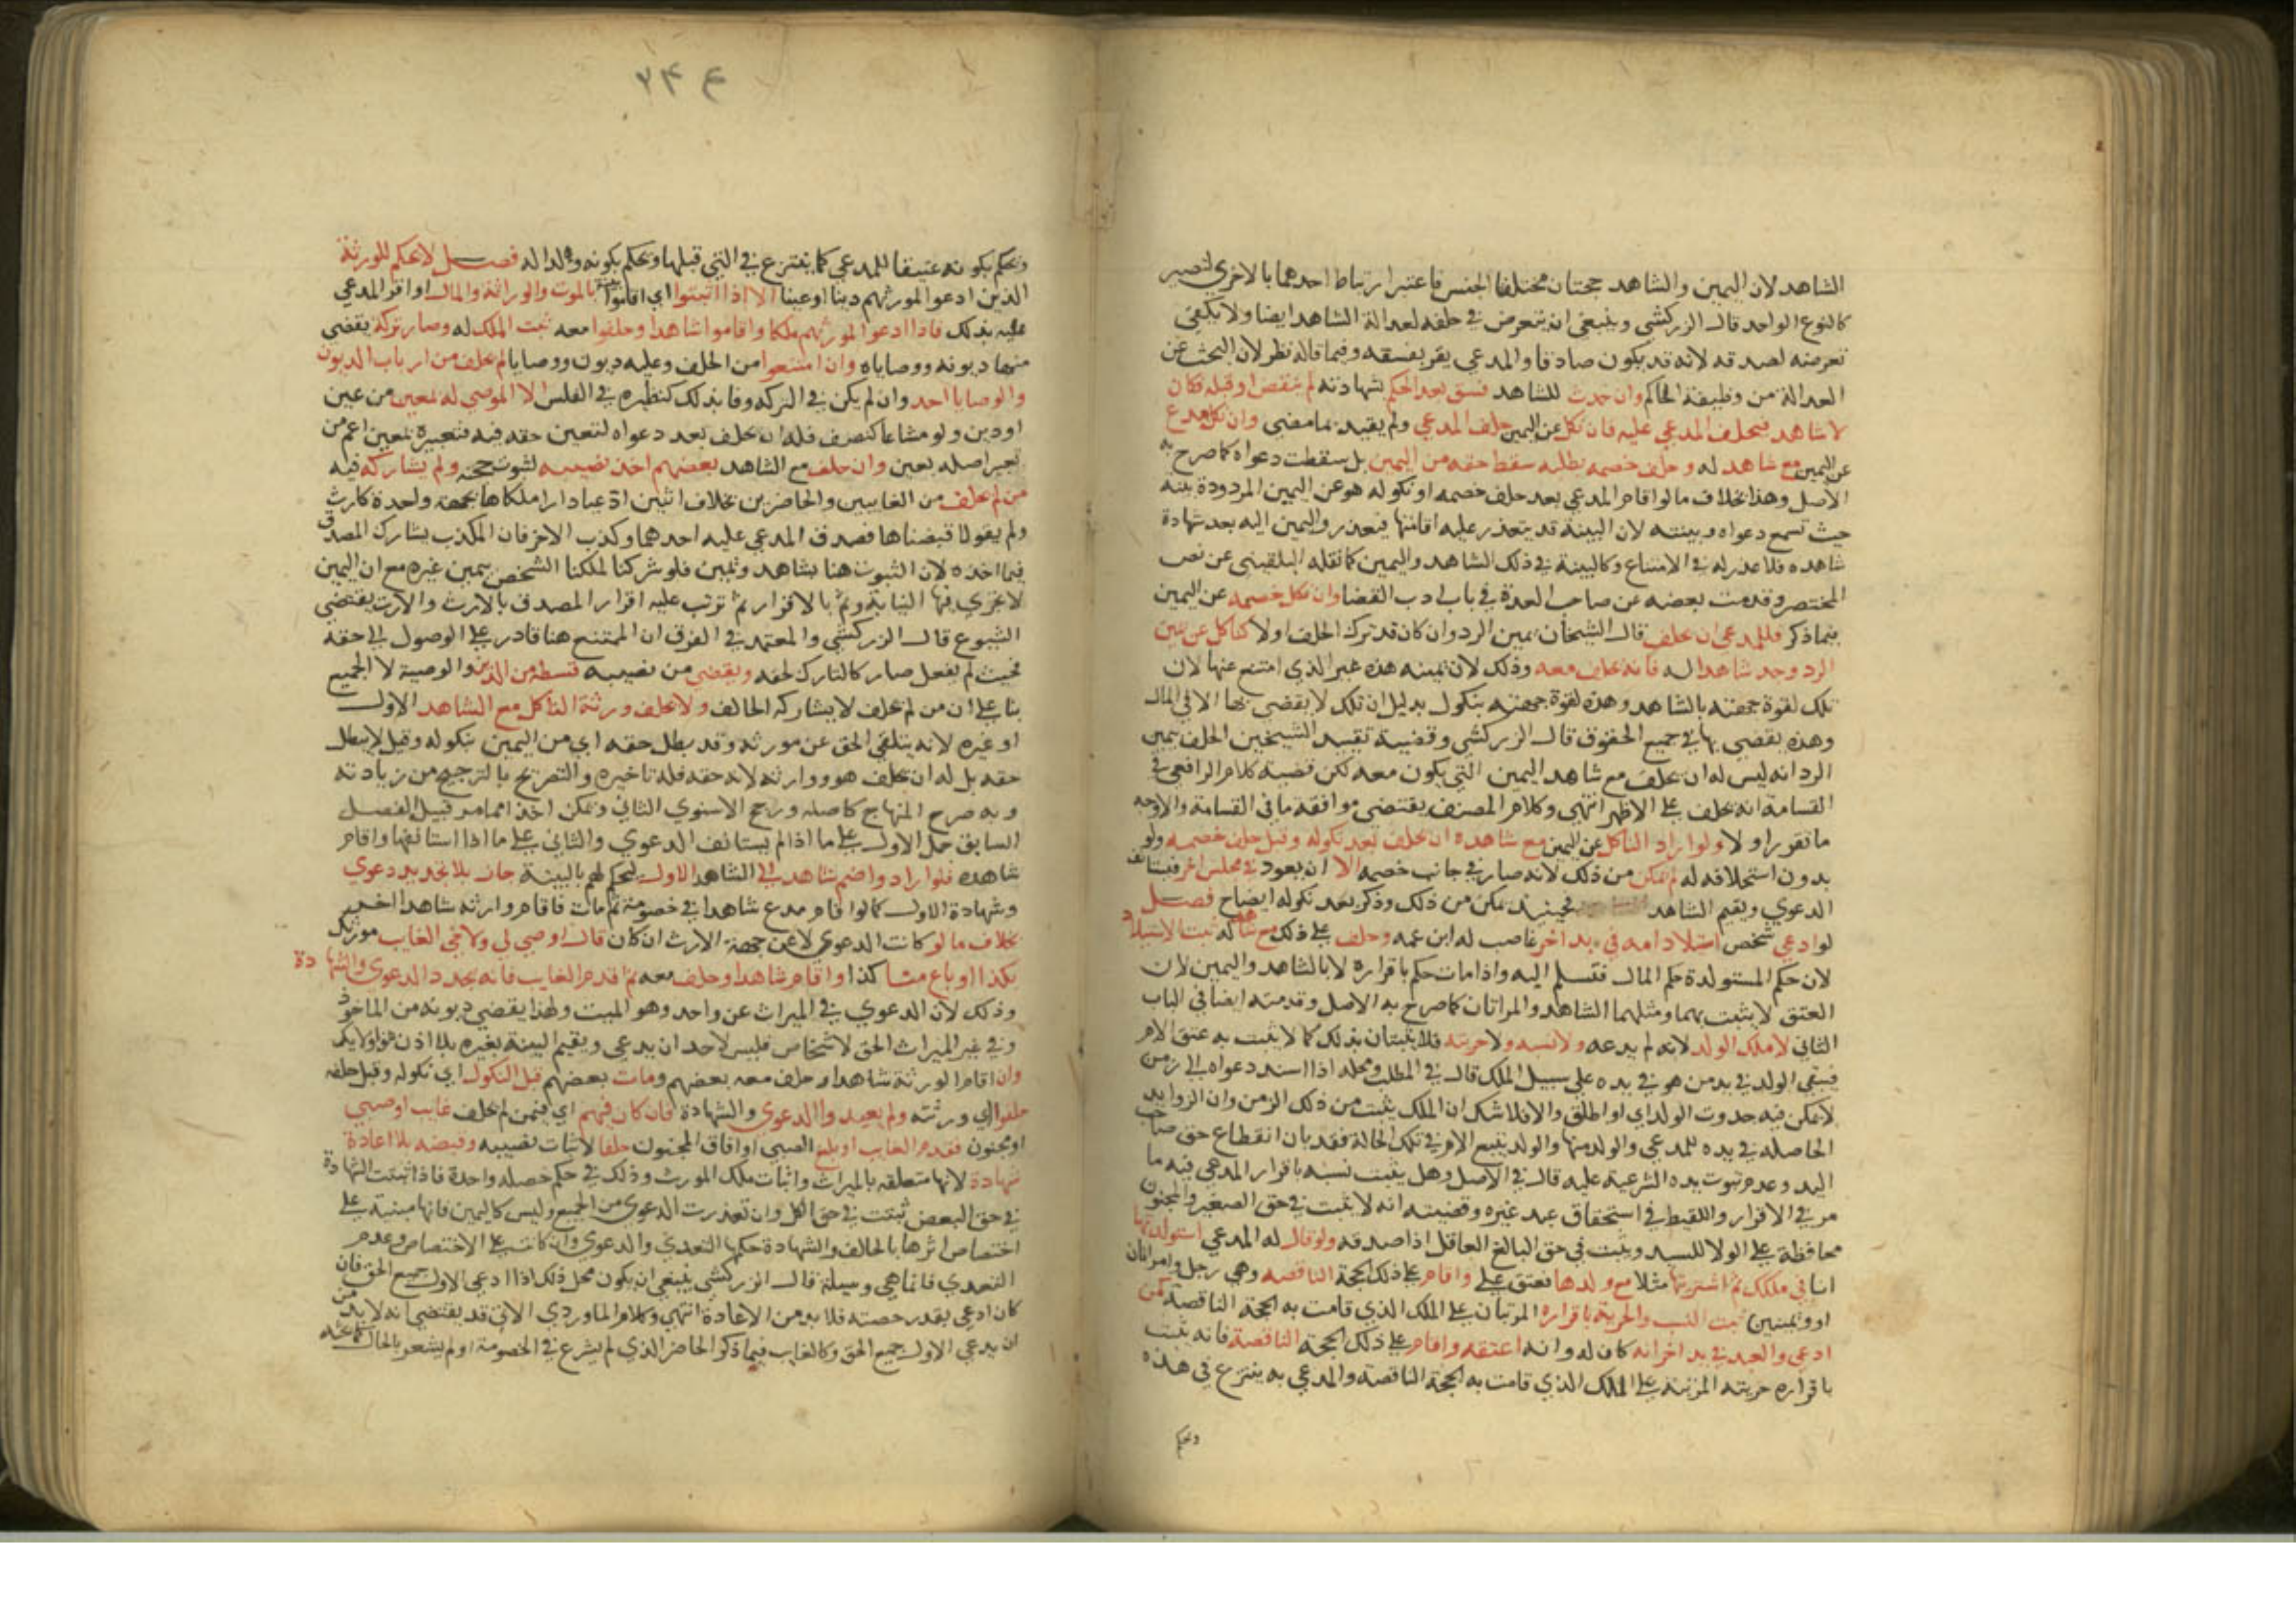 الشاهد لان اليمين والشاهد حجتان مختلفتا الجنس فاعتبر ارتباط احدهما بالاخرى لتصير
كالنوع الواحد قال الزركشي وينبغي ان يتعرض في حلفه لعدالة الشاهد ايضا ولا يكفي
تعرضه لصدقه لانه قد يكون صادقا والمدعي يقر بفسقه وفيما قاله نظر لان البحث عن
العدالة من وظيفة الحاكم وان حدث للشاهد فسق بعد الحكم بشهادته لم ينقض او قبله فكان
لا شاهد فيحلف المدعي عليه فان نكل عن اليمين حلف المدعي ولم يقيد بما مضى وان نكل مدع
عن اليمين مع شاهد له وحلف خصمه بطلبه سقط حقه من اليمين بل سقطت دعواه كما صرح به
الاصل وهذا بخلاف ما لو اقام المدعي بعد حلف خصمه او نكوله هو عن اليمين المردودة بينة
حيث تسمع دعواه وبينته لان البينة قد يتعذر عليه اقامتها فيعذر واليمين اليه بعد شهادة
شاهده فلا عذر له في الامتناع وكالبينة في ذلك الشاهد واليمين كما نقله البلقيني عن نص
المختصر وقدمت بعضه عن صاحب العدة في باب ادب القضا وان نكل خصمه عن اليمين
فيما ذكر فللمدعي ان يحلف قال الشيخان يمين الرد وان كان قد ترك الحلف اولا كناكل عن يمين
الرد وجد شاهدا له فانه يحلف معه وذلك لان يمينه هذه غير الذي امتنع عنها لان
تلك لقوة جهته بالشاهد وهذه لقوة جهته بنكول بدليل ان تلك لا يقضى بها الا في المال
وهذه يقضى بها في جميع الحقوق قال الزركشي وقضية تقييد الشيخين الحلف بيمين
الرد انه ليس له ان يحلف مع شاهد اليمين التي يكون معه لكن قضية كلام الرافعي في
القسامة انه يحلف على الاظهر انتهى وكلام المصنف يقتضي موافقة ما في القسامة والاوجه
ما تقرر اولا ولو اراد الناكل عن اليمين مع شاهده ان يحلف بعد نكوله وقبل حلف خصمه ولو
بدون استحلافه له لم يمكن من ذلك لانه صار في جانب خصمه الا ان يعود في مجلس اخر فيستانف
الدعوي ويقيم الشاهد فحينئذ يمكن من ذلك وذكر بعد نكوله ايضاح فصل
لو ادعى شخص استيلاد امه في يد اخر غاصب له ابن عمه وحلف على ذلك مع شاهد ثبت الاستيلاد
لان حكم المستولدة حكم المال فتسلم اليه واذا مات حكم باقراره لا بالشاهد واليمين لان
العتق لا يثبت بهما ومثلهما الشاهد والمراتان كما صرح به الاصل وقدمته ايضا في الباب
الثاني لا ملك الولد لانه لم يدعه ولا نسبه ولا حريته فلا يثبتان بذلك كما لا يثبت به عتق الام
فيبقى الولد في يد من هو في يده على سبيل الملك قال في المطلب ومحله اذا اسند دعواه الى زمن
لا يمكن فيه حدوث الولد اي او اطلق والا فلا شك ان الملك يثبت من ذلك الزمن وان الزوايد
الحاصلة في يده للمدعي والولد منها والولد يتبع الام في تلك الحالة فقد بان انقطاع حق صاحب
اليد وعدم ثبوت يده الشرعية عليه قال في الاصل وهل يثبت نسبه باقرار المدعي فيه ما
مر في الاقرار واللقيط في استحقاق عبد غيره وقضيته انه لا يثبت في حق الصغير والمجنون
محافظة على الولا للسيد ويثبت في حق البالغ العاقل اذا صدقه ولو قال له المدعي استولدتها
انا في ملكك ثم اشتريتها مثلا مع ولدها فعتق علي واقام على ذلك الحجة الناقصة وهي رجل وامراتان
او ويمين ثبت النسب والحرية باقراره المرتبان على الملك الذي قامت به الحجة الناقصة كمن
ادعى والعبد في يد اخر انه كان له وانه اعتقه واقام على ذلك الحجة الناقصة فانه يثبت
باقراره حريته المرتبة على الملك الذي قامت به الحجة الناقصة والمدعي به ينتزع في هذه
ويحكم
ع ٣٤
ويحكم بكونه عتيقا للمدعي كما ينتزع في التي قبلها ويحكم بكونه ولدا له فصل لا يحكم للورثة
الذين ادعوا لمورثهم دينا او عينا الا اذا اثبتوا اي اقاموا بينة بالموت والوراثة والمال او اقر المدعي
عليه بذلك فاذا ادعوا لمورثهم ملكا واقاموا شاهدا وحلفوا معه ثبت الملك له وصار تركة يقضى
منها ديونه ووصاياه وان امتنعوا من الحلف وعليه ديون ووصايا لم يحلف من ارباب الديون
والوصايا احد وان لم يكن في التركه وفا بذلك كنظيره في الفلس الا الموصى له بمعين من عين
او دين ولو مشاعا كنصف فله ان يحلف بعد دعواه لتعين حقه فيه فتعبيره بمعين اعم من
تعبير اصله بعين وان حلف مع الشاهد بعضهم اخذ نصيبه لثبوت حجته ولم يشاركه فيه
من لم يحلف من الغايبين والحاضرين بخلاف اثنين ادعيا دارا ملكاها بجهة واحدة كارث
ولم يقولا قبضناها فصدق المدعى عليه احدهما وكذب الاخر فان المكذب يشارك المصدق
فيما اخذه لان الثبوت هنا بشاهد ويمين فلو شركنا لملكنا الشخص بيمين غيره مع ان اليمين
لا تجزي فيها النيابة وثم بالاقرار ثم ترتب عليه اقرار المصدق بالارث والارث يقتضي
الشيوع قال الزركشي والمعتمد في الفرق ان الممتنع هنا قادر على الوصول الى حقه
فحيث لم يفعل صار كالتارك لحقه ويقضى من نصيبه قسطه من الدين والوصية لا الجميع
بنا على ان من لم يحلف لا يشارك الحالف ولا يحلف ورثة الناكل مع الشاهد الاول
او غيره لانه يتلقى الحق عن مورثه وقد بطل حقه اي من اليمين بنكوله وقيل لا يبطل
حقه بل له ان يحلف هو ووارثه لانه حقه فله تاخيره والتصريح بالترجيح من زيادته
وبه صرح المنهاج كاصله ورجح الاسنوي الثاني ويمكن اخذا مما مر قبيل الفصل
السابق حمل الاول على ما اذا لم يستانف الدعوي والثاني على ما اذا استانفها واقام
شاهده فلو ارادوا ضم شاهد الى الشاهد الاول ليحكم لهم بالبينة جاز بلا تجديد دعوي
وشهادة الاول كما لو اقام مدع شاهدا في خصومة ثم مات فاقام وارثه شاهدا اخر
بخلاف ما لو كانت الدعوي لا عن جهة الارث ان كان قال اوصى لي ولاخي الغايب مورثك
بكذا او باع منا كذا واقام شاهدا وحلف معه ثم قدم الغايب فانه يجدد الدعوى والشهادة
وذلك لان الدعوي في الميراث عن واحد وهو الميت ولهذا يقضى ديونه من الماخوذ
وفي غير الميراث الحق لاشخاص فليس لاحد ان يدعي ويقيم البينة لغيره بلا اذن او ولاية
وان اقام الورثة شاهدا وحلف معه بعضهم ومات بعضهم قبل النكول اي نكوله وقبل حلفه
حلفوا اي ورثته ولم يعيدوا الدعوى والشهادة فان كان فيهم اي فيمن لم يحلف غايب او صبي
او مجنون فقدم الغايب او بلغ الصبي او افاق المجنون حلفا لاثبات نصيبه وقبضه بلا اعادة
شهادة لانها متعلقه بالميراث واثبات ملك المورث وذلك في حكم خصله واحدة فاذا ثبتت الشهادة
في حق البعض ثبتت في حق الكل وان تعذرت الدعوى من الجميع وليس كاليمين فانها مبنية على
اختصاص اثرها بالحالف والشهادة حكمها التعدي والدعوي وان كانت على الاختصاص وعدم
التعدي فانما هي وسيلة قال الزركشي ينبغي ان يكون محل ذلك اذا ادعى الاول جميع الحق فان
كان ادعى بقدر حصته فلا بد من الاعادة انتهى وكلام الماوردي الاتي قد يقتضي انه لا بد من
ان يدعي الاول جميع الحق وكالغايب فيما ذكر الحاضر الذي لم يشرع في الخصومة او لم يشعر بالحال